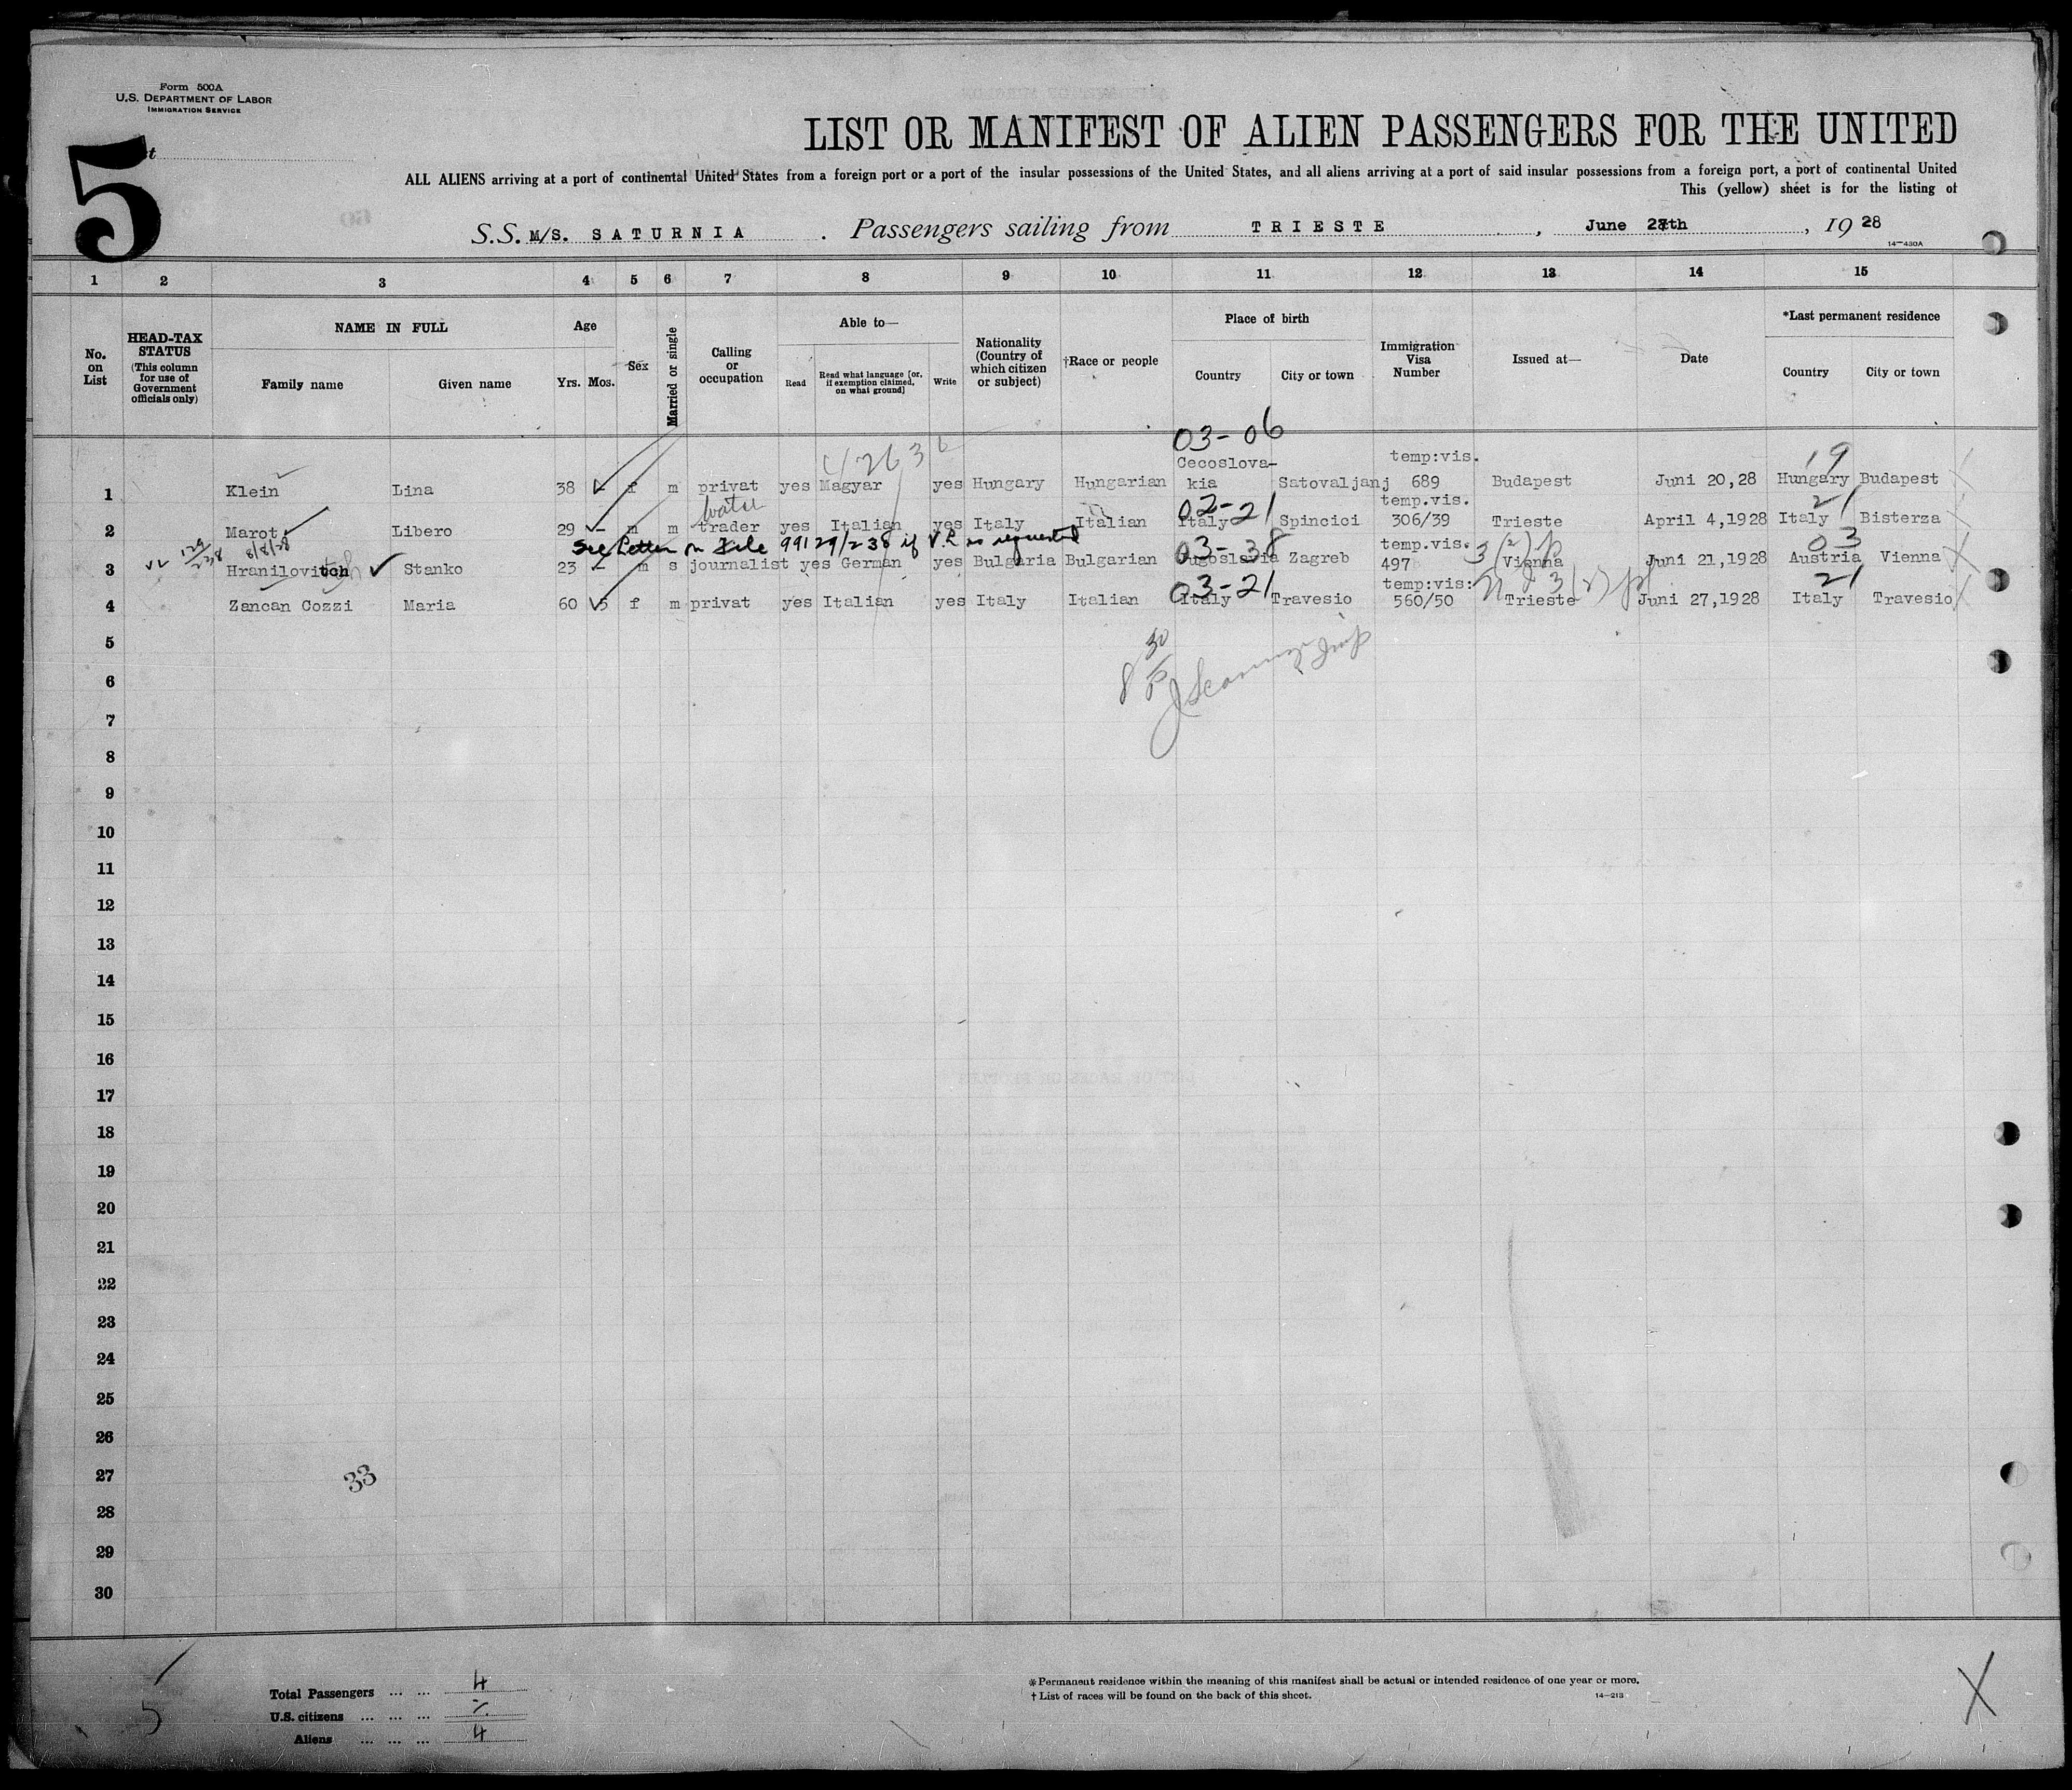 Form 500A
U.S. DEPARTMENT OF LABOR
IMMIGRATION SERVICE
5
LIST OR MANIFEST OF ALIEN PASSENGERS FOR THE UNITED
ALL ALIENS arriving at a port of continental United States from a foreign port or a port of the insular possessions of the United States, and all aliens arriving at a port of said insular possessions from a foreign port, a port of continental United
This (yellow) sheet is for the listing of
S.S. M/S. SATURNIA. Passengers sailing from TRIESTE, June 28th, 1928
14-430A
1 2 3 4 5 6 7 8 9 10 11 12 13 14 15
No. on List
HEAD-TAX STATUS (This column for use of Government officials only)
NAME IN FULL
Family name Given name
Age
Yrs. Mos.
Sex
Married or single
Calling or occupation
Able to—
Read Read what language [or, if exemption claimed, on what ground] Write
Nationality (Country of which citizen or subject)
†Race or people
Place of birth
Country City or town
Immigration Visa Number
Issued at—
Date
*Last permanent residence
Country City or town
03-06
42636 19
1 Klein Lina 38 - f m privat yes Magyar yes Hungary Hungarian Cecoslova-kia Satovaljanj temp:vis. 689 Budapest Juni 20,28 Hungary Budapest
02-21 21
2 Marot Libero 29 - m m trader yes Italian yes Italy Italian Italy Spincici temp.vis. 306/39 Trieste April 4,1928 Italy Bisterza
8/8/28 See Letter on File 99129/238 if V.L. is requested
03-38 3(2)p 03
3 Hranilovitch Stanko 23 - m s journalist yes German yes Bulgaria Bulgarian Jugoslavia Zagreb temp.vis. 497 Vienna Juni 21,1928 Austria Vienna
03-21 3(2)p 21
4 Zancan Cozzi Maria 60 5 f m privat yes Italian yes Italy Italian Italy Travesio temp:vis: 560/50 Trieste Juni 27,1928 Italy Travesio
5
6
7
8
9
10
11
12
13
14
15
16
17
18
19
20
21
22
23
24
25
26
27
33
28
29
30
Total Passengers ... ... 4
U.S. citizens ... ... ...
Aliens ... ... ... 4
5
* Permanent residence within the meaning of this manifest shall be actual or intended residence of one year or more.
† List of races will be found on the back of this sheet.
14-213
X